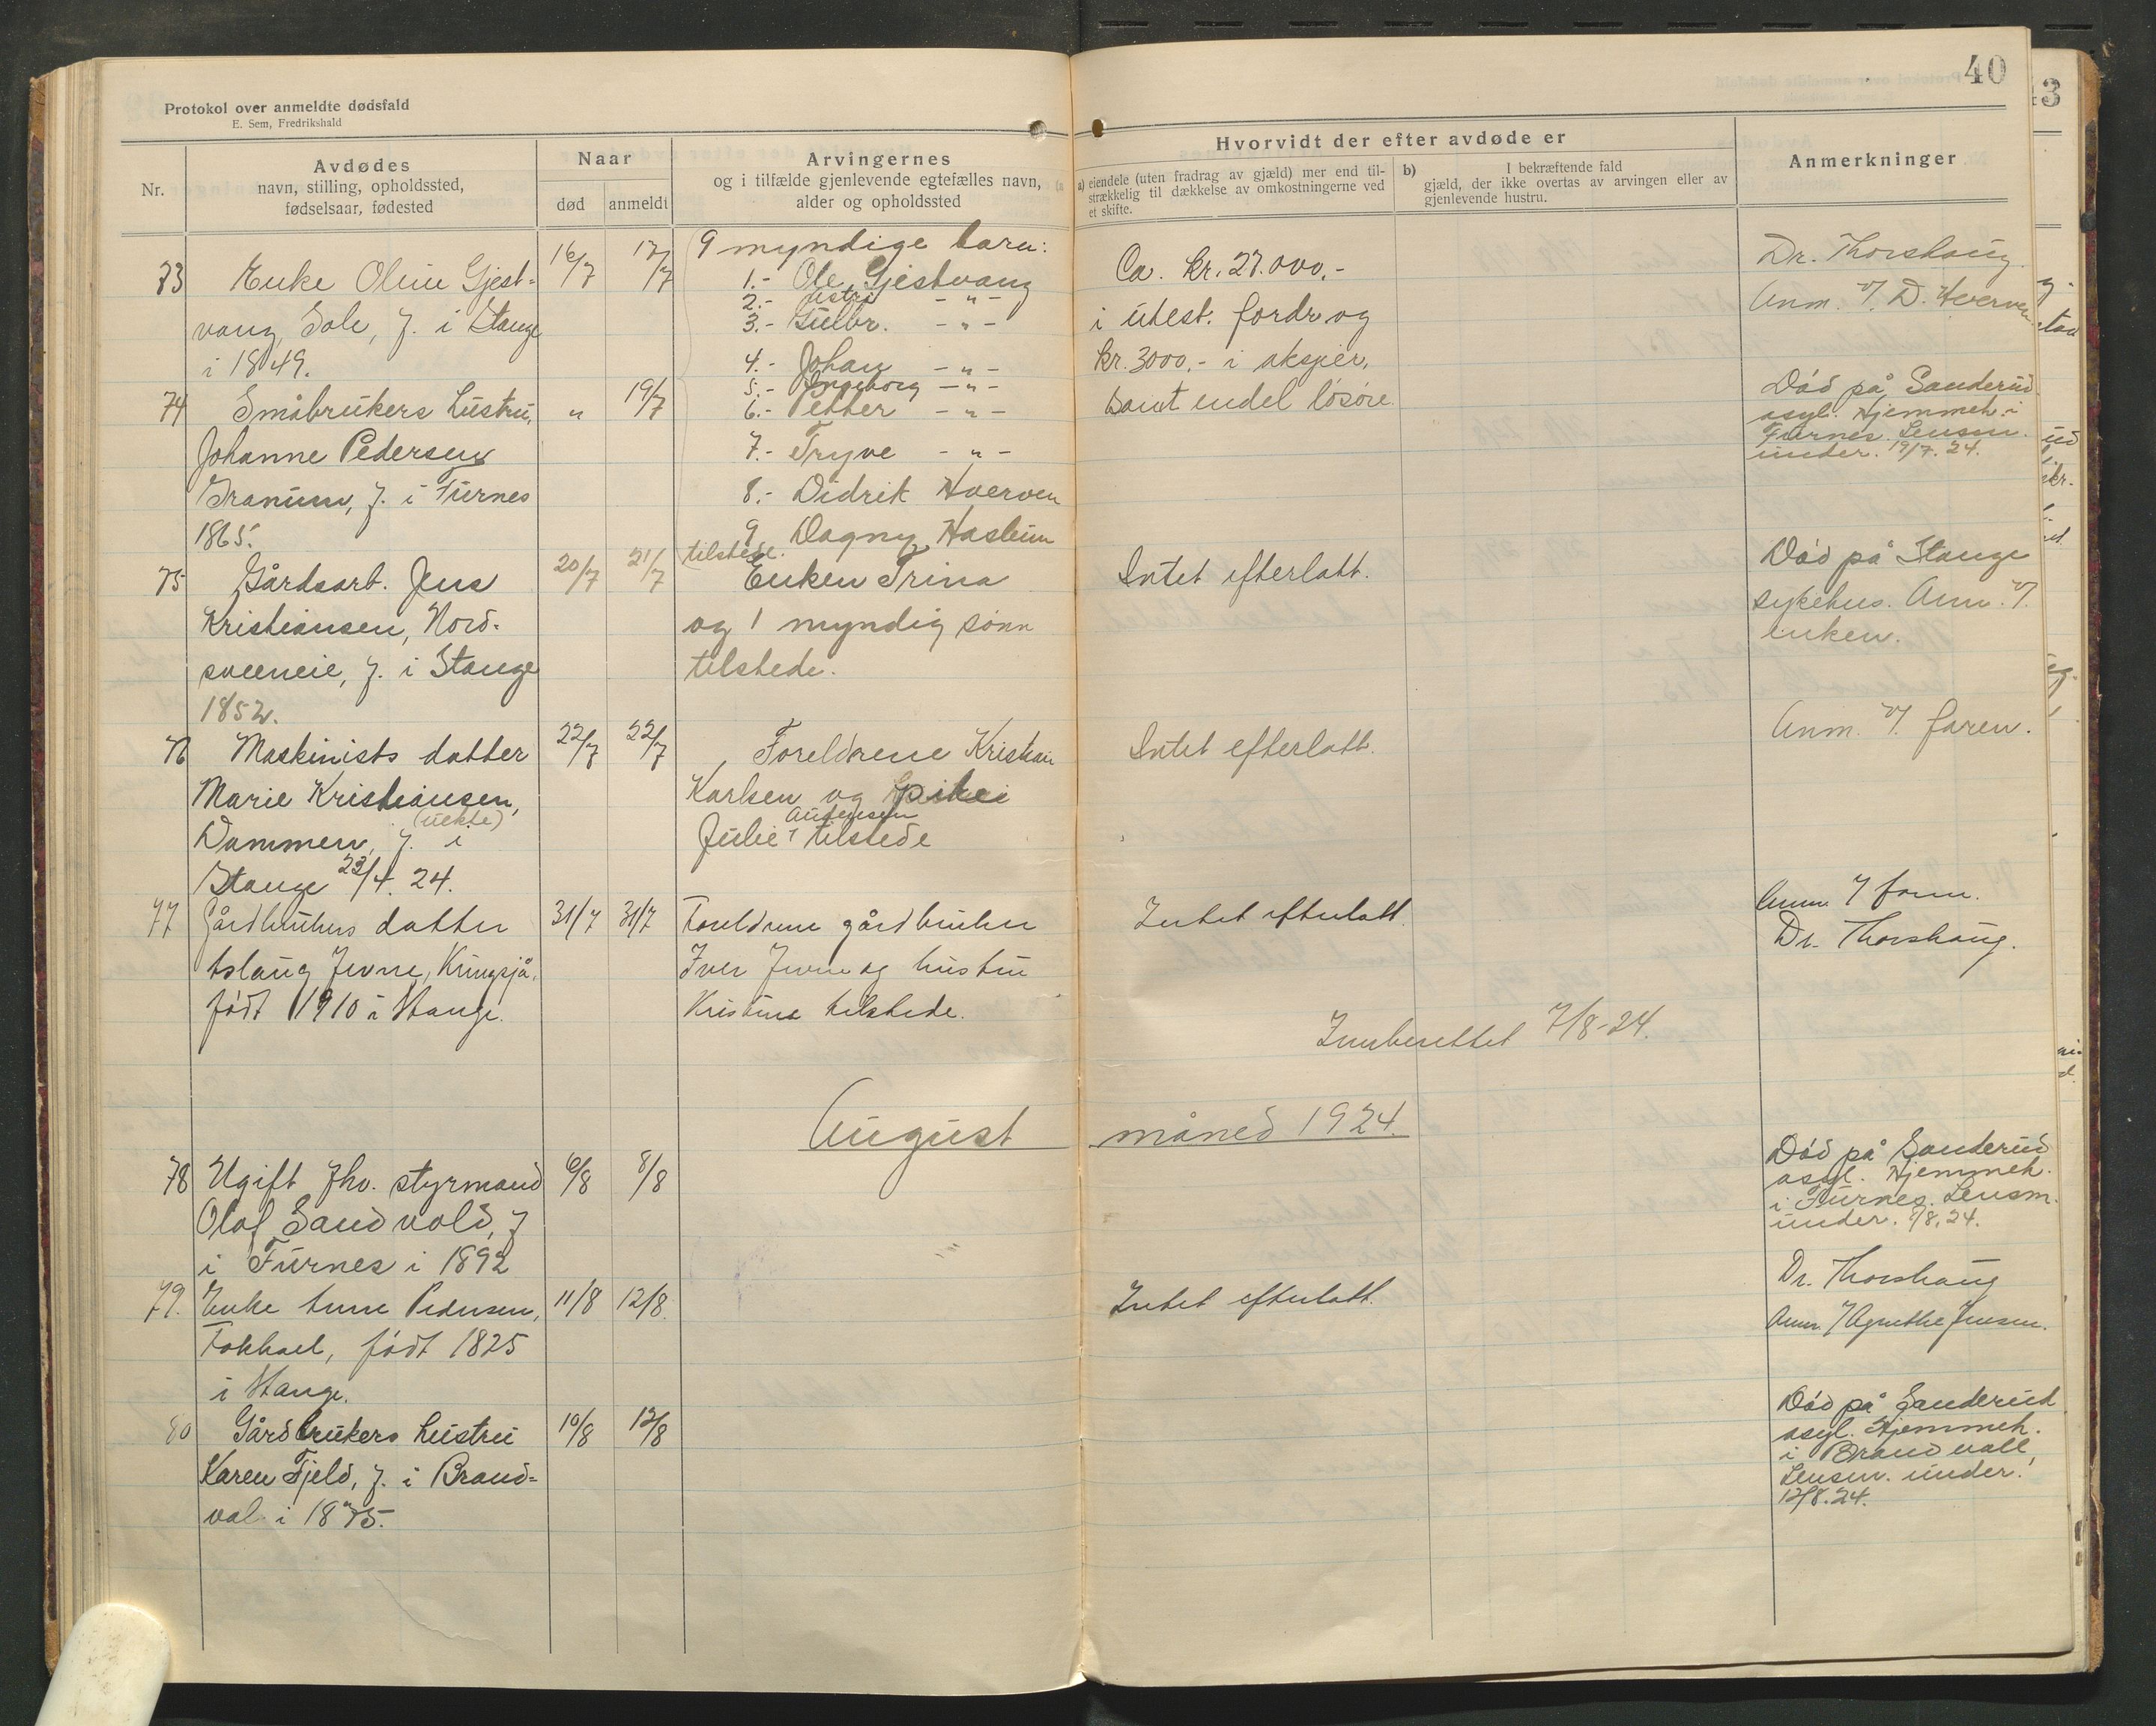 40
3
Protokol over anmeldte dødsfald
E. Sem, Fredrikshald
Nr.
Avdødes
navn, stilling, opholdssted,
fødselsaar, fødested
Naar
død
anmeldt
Arvingernes
og i tilfælde gjenlevende egtefælles navn,
alder og opholdssted
Hvorvidt der efter avdøde er
a) eiendele (uten fradrag av gjæld) mer end til-
strækkelig til dækkelse av omkostningerne ved
et skifte.
b) I bekræftende fald
gjæld, der ikke overtas av arvingen eller av
gjenlevende hustru.
Anmerkninger
73
Enke Oline Gjest-
vang, Sole, f. i Stange
i 1849.
16/7
17/7
9 myndige barn:
1.- Ole Gjestvang
2.- -"-
3.- Gulbr. -"-
4.- Johan -"-
5.- Ingeborg -"-
6.- Petter -"-
7.- Tryve -"-
8.- Didrik Hverven
9. Dagny
tilstede.
Ca. kr. 27.000.-
i utest. fordr. og
kr. 3000.- i aksjer,
samt endel løsøre.
Dr. Thorshaug.
Anm. v/ D. Hverven
74
Småbrukers hustru,
Johanne Pedersen
Granum, f. i Furnes
1865.
"
19/7
Død på Sanderud
asyl. Hjemmeh. i
Furnes. Lensm.
under. 19/7. 24.
75
Gårdsarb. Jens
Kristiansen, Nord-
sveeneie, f. i Stange
1852.
20/7
21/7
Enken Trina
og 1 myndig sønn
tilstede.
Intet efterlatt.
Død på Stange
sykehus. Anm. v/
enken.
76
Maskinists datter
Marie Kristiansen,
(uekte)
Dammen, f. i
Stange 23/4. 24.
22/7
22/7
Foreldrene Kristian
Karlsen og pike
Andersen
Julie tilstede
Intet efterlatt.
Anm. v/ faren.
77
Gårdbrukers datter
Aslaug Jevne, Kringsjå,
født 1910 i Stange.
31/7
31/7
Foreldrene gårdbruker
Iver Jevne og hustru
Kristine tilstede.
Intet efterlatt.
Anm v/ faren.
Dr. Thorshaug.
Innberettet 7/8-24.
August måned 1924.
78
Ugift fhv. styrmand
Olaf Sandvold, f
i Furnes i 1892
6/8
8/8
Død på Sanderud
asyl. Hjemmeh.
i Furnes. Lensm.
under. 8/8.24.
79.
Enke Anne Pedersen,
født 1825
i Stange.
11/8
12/8
Intet efterlatt.
Dr. Thorshaug
Anm. v/ Agnethe Jensen.
80
Gårdbrukers hustru
Karen Fjeld, f. i Brand-
val i 1875.
10/8
12/8
Død på Sanderud
asyl. Hjemmeh.
i Brandvall,
Lensm. under.
12/8.24.